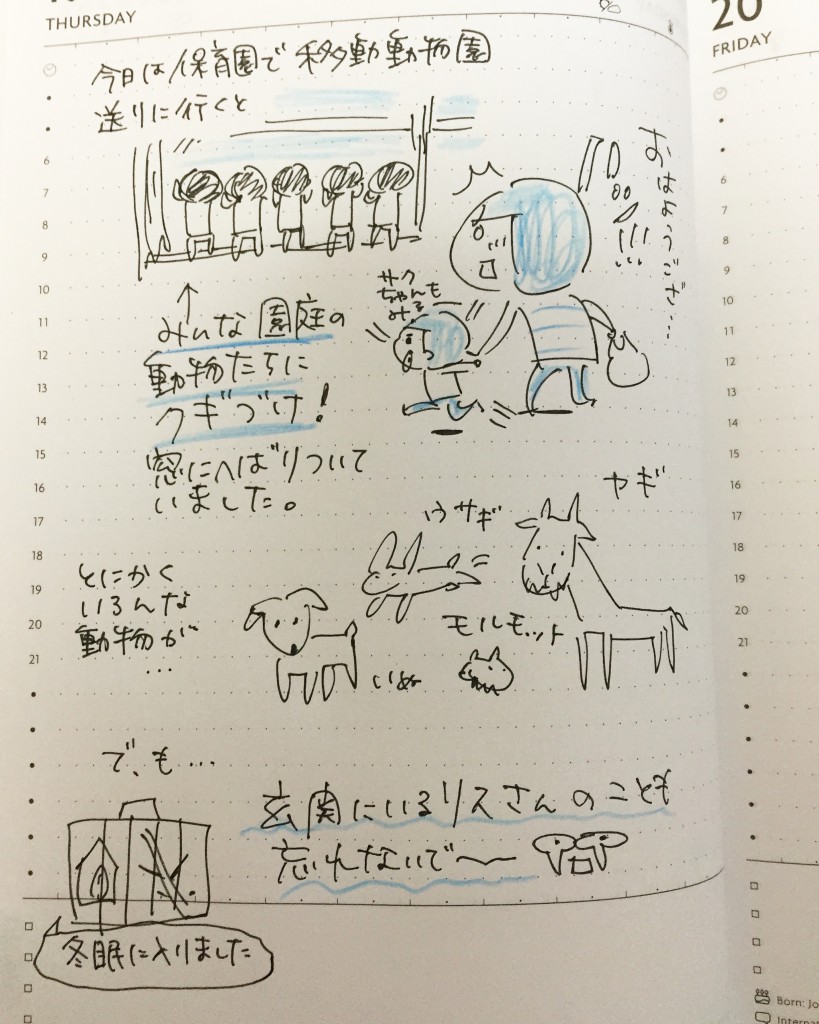 THURSDAY
20
FRIDAY
今日は保育園で移動動物園
送りに行くと
おはようござ…
サク
ちゃんも
みる
↑
みんな園庭の
動物たちに
クギづけ!
窓にへばりついて
いました。
ヤギ
ウサギ
とにかく
いろんな
動物が
…
モルモット
いぬ
で、も…
玄関にいるリスさんのことも
忘れないで〜
冬眠に入りました
6
7
8
9
10
11
12
13
14
15
16
17
18
19
20
21
6
7
8
9
10
11
12
13
14
15
16
17
18
19
20
21
Born: Jo
Interna